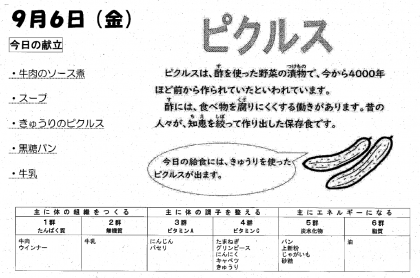 9月6日（金）
今日の献立
・牛肉のソース煮
・スープ
・きゅうりのピクルス
・黒糖パン
・牛乳
ピクルス
ピクルスは、酢を使った野菜の漬物で、今から4000年
ほど前から作られていたといわれています。
酢には、食べ物を腐りにくくする働きがあります。昔の
人々が、知恵を絞って作り出した保存食です。
今日の給食には、きゅうりを使った
ピクルスが出ます。
主に体の組織をつくる 主に体の調子を整える 主にエネルギーになる
1群 2群 3群 4群 5群 6群
たんぱく質 無機質 ビタミンA ビタミンC 炭水化物 脂質
牛肉 牛乳 にんじん たまねぎ パン 油
ウインナー パセリ グリンピース 上新粉
にんにく じゃがいも
キャベツ 砂糖
きゅうり